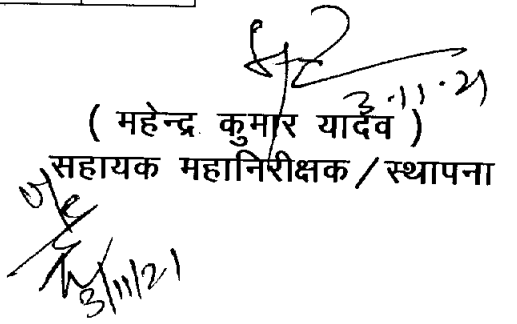 3.11.21
( महेन्द्र कुमार यादव )
सहायक महानिरीक्षक / स्थापना
3/11/21